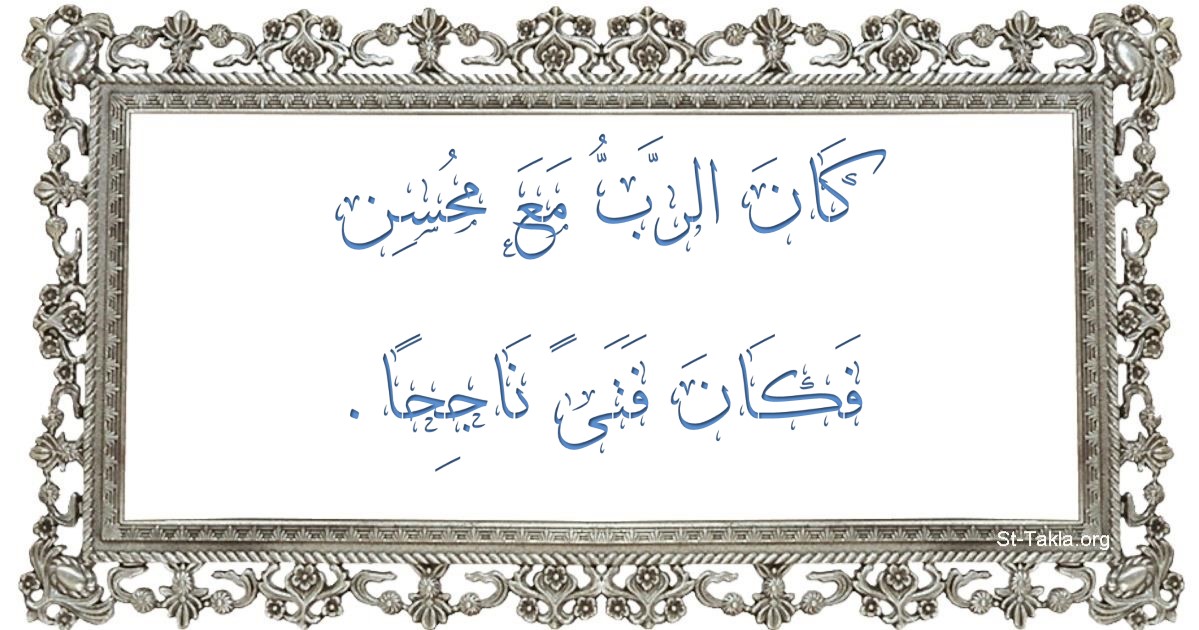 كَانَ الرَّبُّ مَعَ مُحْسِن
فَكَانَ فَتَىً نَاجِحًا .
St-Takla.org